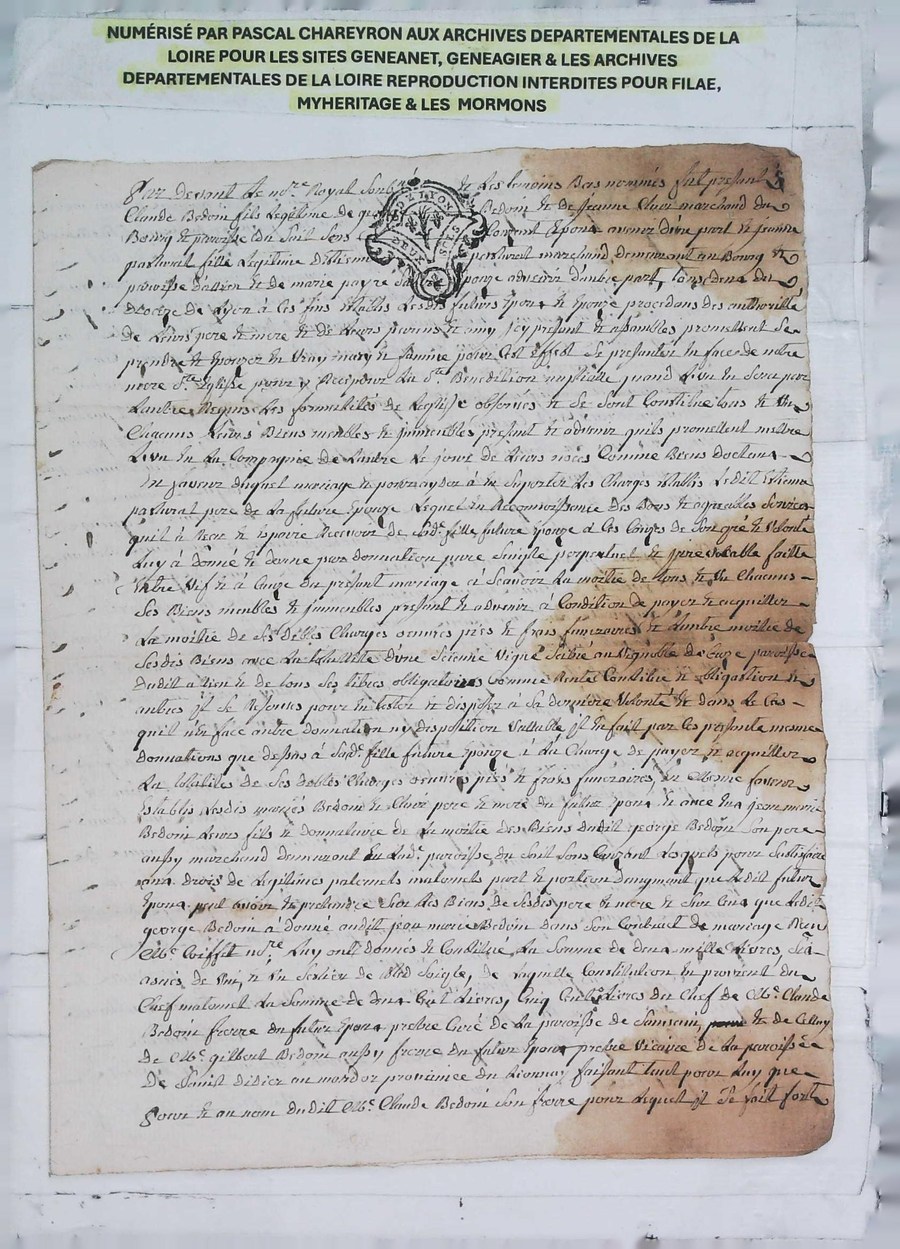 NUMÉRISÉ PAR PASCAL CHAREYRON AUX ARCHIVES DEPARTEMENTALES DE LA
LOIRE POUR LES SITES GENEANET, GENEAGIER & LES ARCHIVES
DEPARTEMENTALES DE LA LOIRE REPRODUCTION INTERDITES POUR FILAE,
MYHERITAGE & LES MORMONS
Par devant le no.re Royal & Les temoins Bas nommés fut present
Claude Bedoin fils Legitime de Bedoin & de Jeanne marchand du
Bourg & paroisse du epoux avenir d'une part & jeanne
pasturat fille Legitime pasturat marchand demeurant au Bourg &
paroisse & de marie payre epouze advenir d'autre part, tous deux du
Diocèze de Lyon à ces fins Establis Lesds futurs epoux & epouze procedans des authorités
de Leurs pere & mere & de Leurs parains & amy jcy present & assemblés promettent Se
prendre & epouzer en vray mary & femme pour cet effet Se presenter en face de notre
mere S.te Eglise pour y Recepvoir La S.te Benediction nuptialle quand L'un en Sera par
L'autre Requis Les formalités de L'eglise observées & Se Sont Constitué tous & un
Chacuns Leurs Biens meubles & jmmeubles present & advenir qu'ils promettent mettre
L'un en La Compagnie de L'autre Le jour de Leurs noces Comme Biens doctaux
En faveur duquel mariage & pour ayder à en Suporter Les Charges Etablis Ledit Etienne
pasturat pere de La future Epouze Lequel en Reconnoissance des Bons & agreables Services
qu'il à Receu & espaire Recevoir de Sad. fille future epouze à Ces Cauzes de Son gré & Volonté
Luy à donné & donne par donnation pure Simple perpetuel & jrrevocable faitte
Entre Vif & à Cauze du présent mariage à Scavoir La moitié de tous & un Chacuns
Ses Biens meubles & jmmeubles present & advenir à Condition de payer & acquitter
La moitié de Ses debtes Charges oeuvres pies & frais funeraires, & L'autre moitié de
Sesds Biens avec La totallité d'une Sienne Vigne Scitué au Vignoble de paroisse
dudit & de tous Ses titres obligatoires Comme Rentes Constitué & obligation &
autres jl Se Reserves pour en tester & disposer à Sa derniere Volonté & dans Le Cas
qu'il n'en face autre donnation ny disposition Vallable jl en fait par Ces presente mesme
donnations que dessus à Sad. fille future epouze à La Charge de payer & acquitter
La totalité de Ses debtes Charges oeuvres pies & frais funeraires, En Meme faveur
Establis Lesds mariés Bedoin & pere & mere du futur Epoux & avec Eux jean marie
Bedoin Leurs fils & donnataire de La moitié des Biens dudit george Bedoin Son pere
aussy marchand demeurant En Lad. paroisse du Lesquels pour Satisfaire
aux droits de Legitimes paternels maternels part & portion d'augment que Ledit futur
Epoux peut avoir & pretendre Sur Les Biens de Sesds pere & mere & Sur Ceux que Ledit
george Bedoin à donné audit jean marie Bedoin dans Son Contract de mariage Receu
M.e Coiffet no.re Luy ont donnés & Constitué La Somme de deux mille Livres, Six
asnées de Vin, & un Sestier de Bled Seigle, de Laquelle Constitution en provient du
Chef maternel La Somme de deux Cent Livres, Cinq Cent Livres du Chef de M.e Claude
Bedoin frere du futur Epoux prestre Curé de La paroisse de & de Celluy
de M.e gilbert Bedoin aussy frere du futur Epoux prestre Vicaire de La paroisse
De Saint didier au mondor province du Lionnay faisant tant pour Luy que
pour & au nom dudit M.e Claude Bedoin Son frere pour Lequel jl Se fait fort